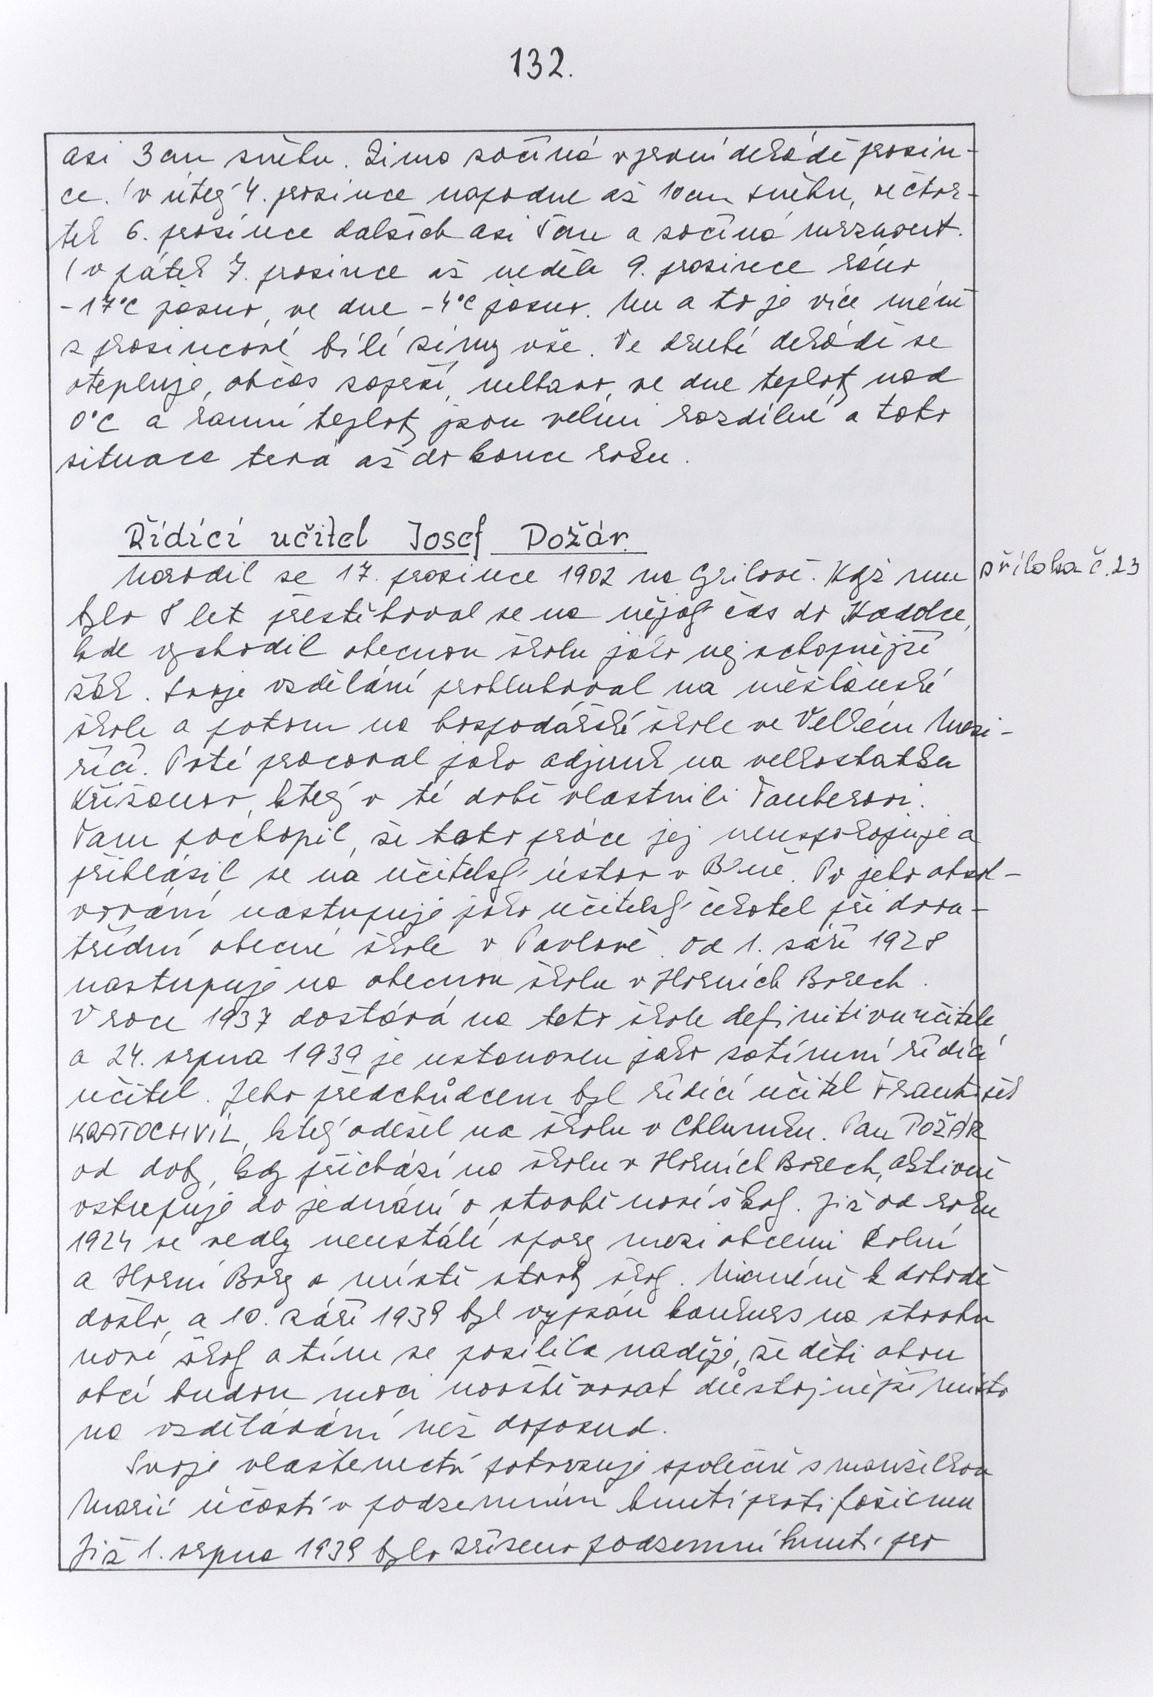 132.
asi 3 cm sněhu. Zima začíná v první dekádě prosin-
ce. (v úterý 4. prosince napadne až 10 cm sněhu, ve čtvr-
tek 6. prosince dalších asi 7 cm a začíná mrznout.
(v pátek 7. prosince až neděle 9. prosince ráno
-17°C jasno, ve dne -4°C jasno. Nu a to je více méně
z prosincové bílé zimy vše. Ve druhé dekádě se
otepluje, občas zaprší, mlhavo, ve dne teploty nad
0°C a ranní teploty jsou velmi rozdílné a tato
situace trvá až do konce roku.
Řídící učitel Josef Požár.
Narodil se 17. prosince 1902 na Grilově. Když mu
příloha č. 23
bylo 8 let přestěhoval se na nějaký čas do Kadolce,
kde vychodil obecnou školu jako nejschopnější
žák. Svoje vzdělání prohluboval na měšťanské
škole a potom na hospodářské škole ve Velkém Mezi-
říčí. Poté pracoval jako adjunk na velkostatku
Křižanov, který v té době vlastnili Tauberovi.
Tam pochopil, že tato práce jej neuspokojuje a
přihlásil se na učitelský ústav v Brně. Po jeho absol-
vování nastupuje jako učitelský čekatel při dvou-
třídní obecné škole v Pavlově. Od 1. září 1928
nastupuje na obecnou školu v Horních Borech.
V roce 1937 dostává na této škole definitivu učitele
a 24. srpna 1939 je ustanoven jako zatímní řídící
učitel. Jeho předchůdcem byl řídící učitel František
KRATOCHVÍL, který odešel na školu v Chlumku. Pan POŽÁR
od doby, kdy přichází na školu v Horních Borech, aktivně
vstupuje do jednání o stavbě nové školy. Již od roku
1924 se vedly neustálé spory mezi obcemi Dolní
a Horní Bory o místě stavby školy. Nicméně k dohodě
došlo, a 10. září 1939 byl vypsán konkurs na stavbu
nové školy a tím se posílila naděje, že děti obou
obcí budou moci navštěvovat důstojnější místo
na vzdělávání než doposud.
Svoje vlastenectví potvrzuje společně s manželkou
Marií účastí v podzemním hnutí proti fašismu
Již 1. srpna 1939 bylo zřízeno podzemní hnutí pro